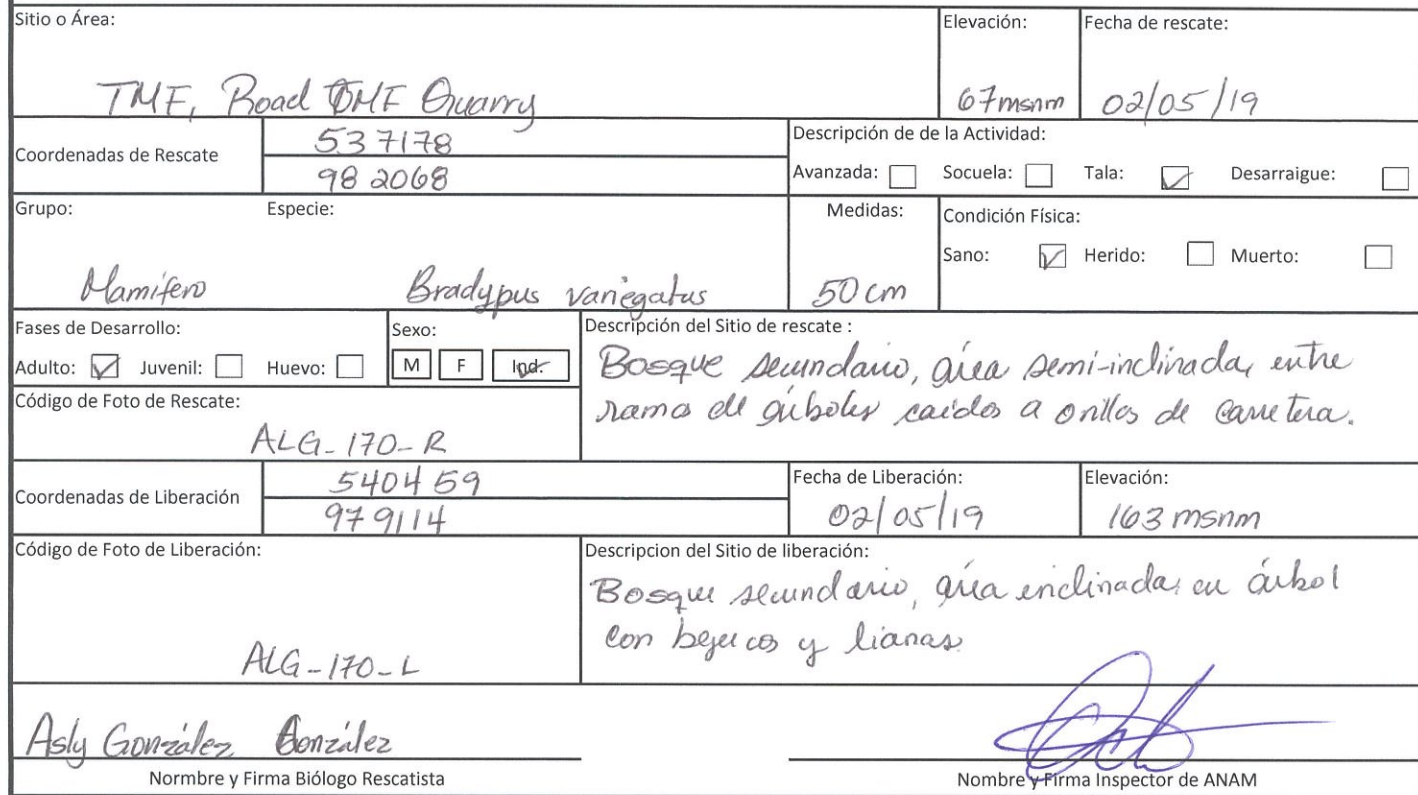 Sitio o Área:
Elevación:
Fecha de rescate:
TMF, Road TMF Quarry
67msnm
02/05/19
Coordenadas de Rescate
537178
982068
Descripción de de la Actividad:
Avanzada: Socuela: Tala: Desarraigue:
Grupo:
Especie:
Medidas:
Condición Física:
Sano: Herido: Muerto:
Mamífero
Bradypus variegatus
50 cm
Fases de Desarrollo:
Adulto: Juvenil: Huevo:
Sexo:
M F Ind.
Descripción del Sitio de rescate :
Bosque secundario, área semi-inclinada, entre
rama de árboles caidos a orillas de carretera.
Código de Foto de Rescate:
ALG-170-R
Coordenadas de Liberación
540459
979114
Fecha de Liberación:
02/05/19
Elevación:
163 msnm
Código de Foto de Liberación:
ALG-170-L
Descripcion del Sitio de liberación:
Bosque secundario, área enclinada, en árbol
con bejucos y lianas
Asly González González
Normbre y Firma Biólogo Rescatista
Nombre y Firma Inspector de ANAM